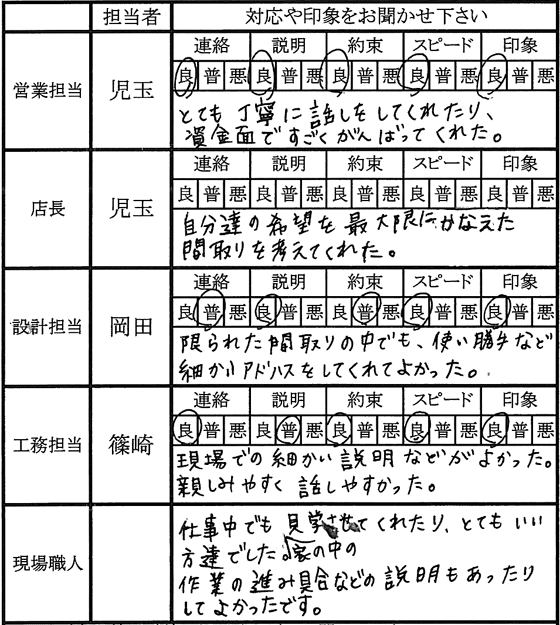 担当者 対応や印象をお聞かせ下さい
営業担当 児玉 連絡 説明 約束 スピード 印象
良 普 悪 良 普 悪 良 普 悪 良 普 悪 良 普 悪
とても丁寧に話しをしてくれたり、
資金面ですごくがんばってくれた。
店長 児玉 連絡 説明 約束 スピード 印象
良 普 悪 良 普 悪 良 普 悪 良 普 悪 良 普 悪
自分達の希望を最大限にかなえた
間取りを考えてくれた。
設計担当 岡田 連絡 説明 約束 スピード 印象
良 普 悪 良 普 悪 良 普 悪 良 普 悪 良 普 悪
限られた間取りの中でも、使い勝手など
細かいアドバイスをしてくれてよかった。
工務担当 篠崎 連絡 説明 約束 スピード 印象
良 普 悪 良 普 悪 良 普 悪 良 普 悪 良 普 悪
現場での細かい説明などがよかった。
親しみやすく話しやすかった。
現場職人
仕事中でも見学させてくれたり、とてもいい
方達でした。家の中の
作業の進み具合などの説明もあったり
してよかったです。